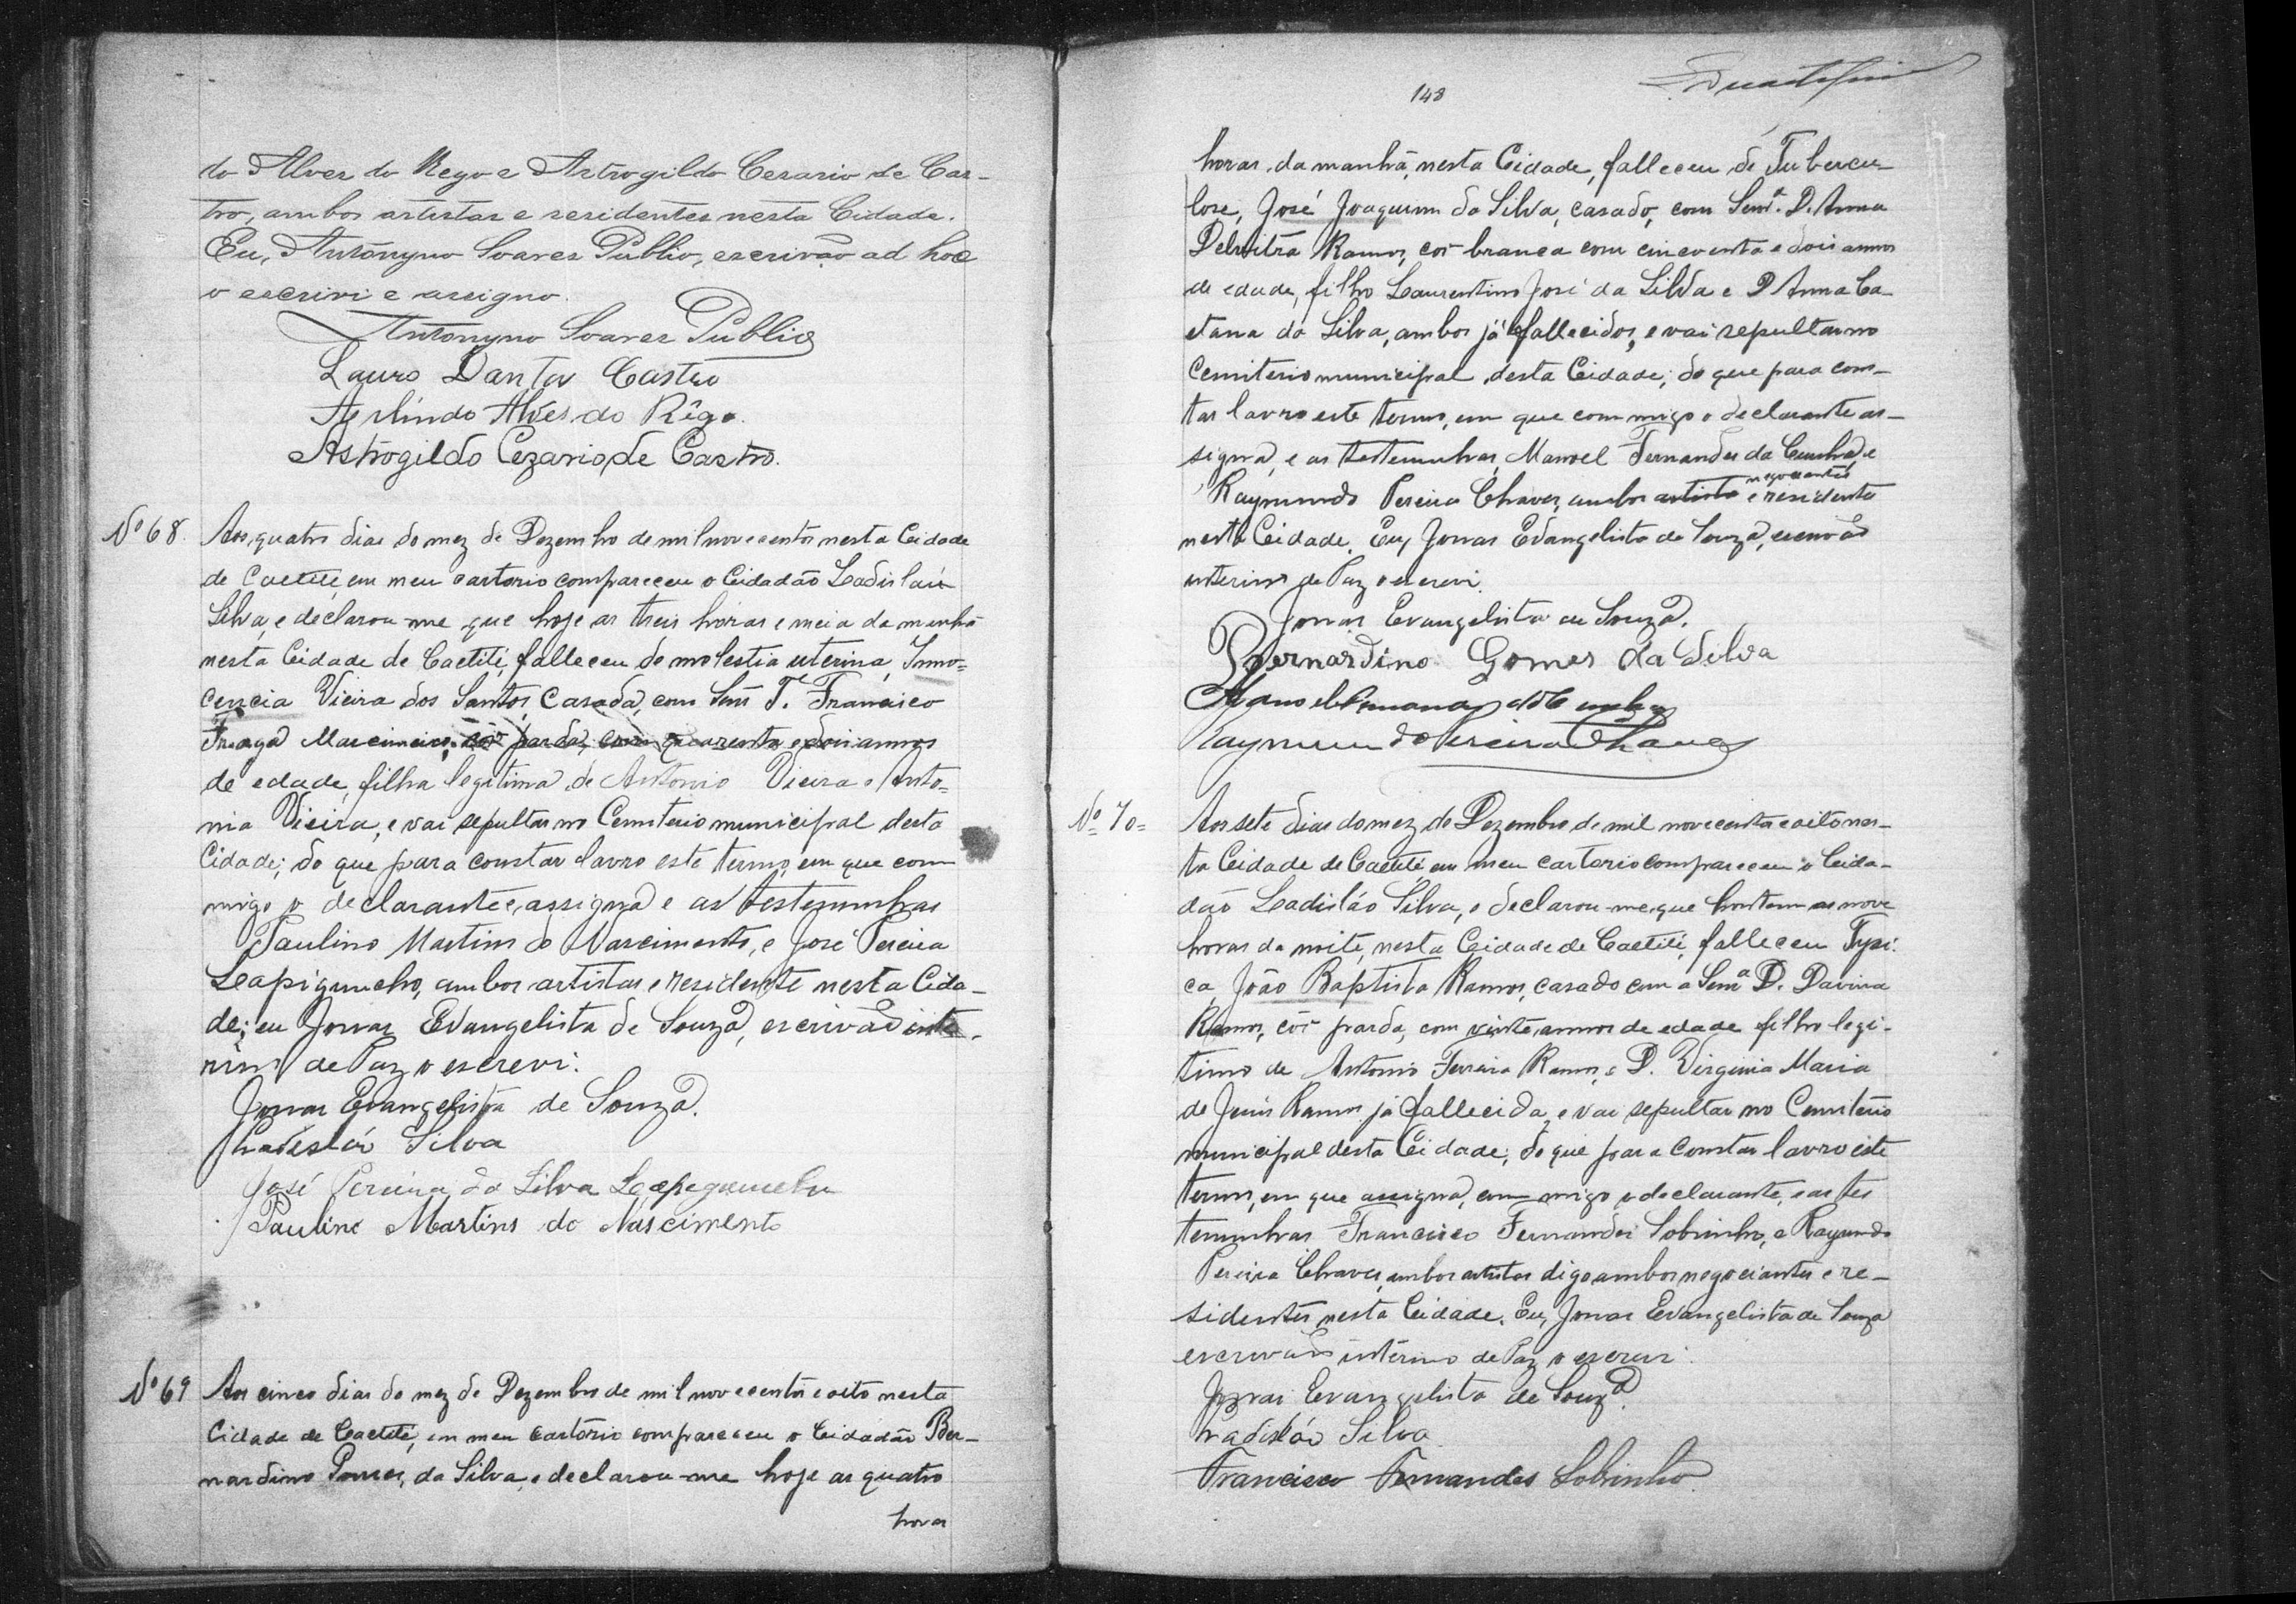 do Alves do Rego e Astrogildo Cesario de Cas-
tro, ambos artistas e residentes nesta Cidade.
Eu, Antonyno Soares Publio, escrivão ad hoc
o escrivi e assigno.
Antonyno Soares Publio
Lauro Dantas Castro
Arlindo Alves do Rêgo.
Astrogildo Cezario de Castro.
Nº 68. Aos quatro dias do mez de Dezembro de mil novecentos nesta Cidade
de Caetité, em meu cartorio compareceu o Cidadão Ladislau
Silva, e declarou-me que hoje as treis horas e meia da manhã
nesta Cidade de Caetité, falleceu de molestia uterina, Inno=
cencia Vieira dos Santos, Casada, com Francisco
cor parda, com quarenta e dois annos
de edade, filha legitima de Antonio Vieira e Anto=
nia Vieira, e vai sepultar no Cemiterio municipal desta
Cidade; do que para constar lavro este termo, em que com
migo o declarante, assigna e as testemunhas
Paulino Martins do Nascimento, e José Pereira
ambos artistas e residente nesta Cida-
de; eu Jonas Evangelista de Souza, escrivão inte-
rino de Paz o escrevi.
Jonas Evangelista de Souza.
Ladislão Silva
José Pereira da Silva
Paulino Martins do Nascimento
Nº 69 Aos cinco dias do mez de Dezembro de mil novecentos e oito nesta
Cidade de Caetité, em meu cartorio compareceu o Cidadão Ber-
nardino Gomes, da Silva, e declarou-me hoje as quatro
horas
148
horas da manhã, nesta Cidade, falleceu de Tubercu-
lose, José Joaquim da Silva, casado, com Senrª. D. Anna
Ramos, cor branca com cincoenta e dois annos
de edade, filho Laurentino José da Silva e D Anna Ca-
etana da Silva, ambos já fallecidos, e vai sepultar no
Cemiterio municipal desta Cidade; do que para cons-
tar lavro este termo, em que commigo o declarante as-
signa, e as testemunhas, Manoel Fernandes da Cunha, e
Raymundo Pereira Chaves, ambos artista negociantes e residente
nesta Cidade. Eu, Jonas Evangelista de Souza, escrivão
interino de Paz o escrevi.
Jonas Evangelista de Souza.
Bernardino Gomes da Silva
Manoel Fernandes da Cunha
Raymundo Pereira Chaves
Nº 70= Aos sete dias do mez de Dezembro de mil novecentos e oito nes-
ta Cidade de Caetité, em meu cartorio compareceu o Cida-
dão Ladislão Silva, e declarou-me que hontem as nove
horas da noite, nesta Cidade de Caetité, falleceu Tysi-
ca, João Baptista Ramos, casado com a Senrª D. Davina
Ramos, côr parda, com vinte annos de edade filho legi-
timo de Antonio Ferreira Ramos, e D. Virginia Maria
de Jesus Ramos já fallecida, e vai sepultar no Cemiterio
municipal desta Cidade; do que para constar lavro este
termo, em que assigna, com migo o declarante, e as tes
temunhas Francisco Fernandes Sobrinho, e Raymundo
Pereira Chaves, ambos artistas digo ambos negociantes e re-
sidentes nesta Cidade. Eu, Jonas Evangelista de Souza
escrivão interino de Paz o escrevi.
Jonas Evangelista de Souza.
Ladislão Silva
Francisco Fernandes Sobrinho